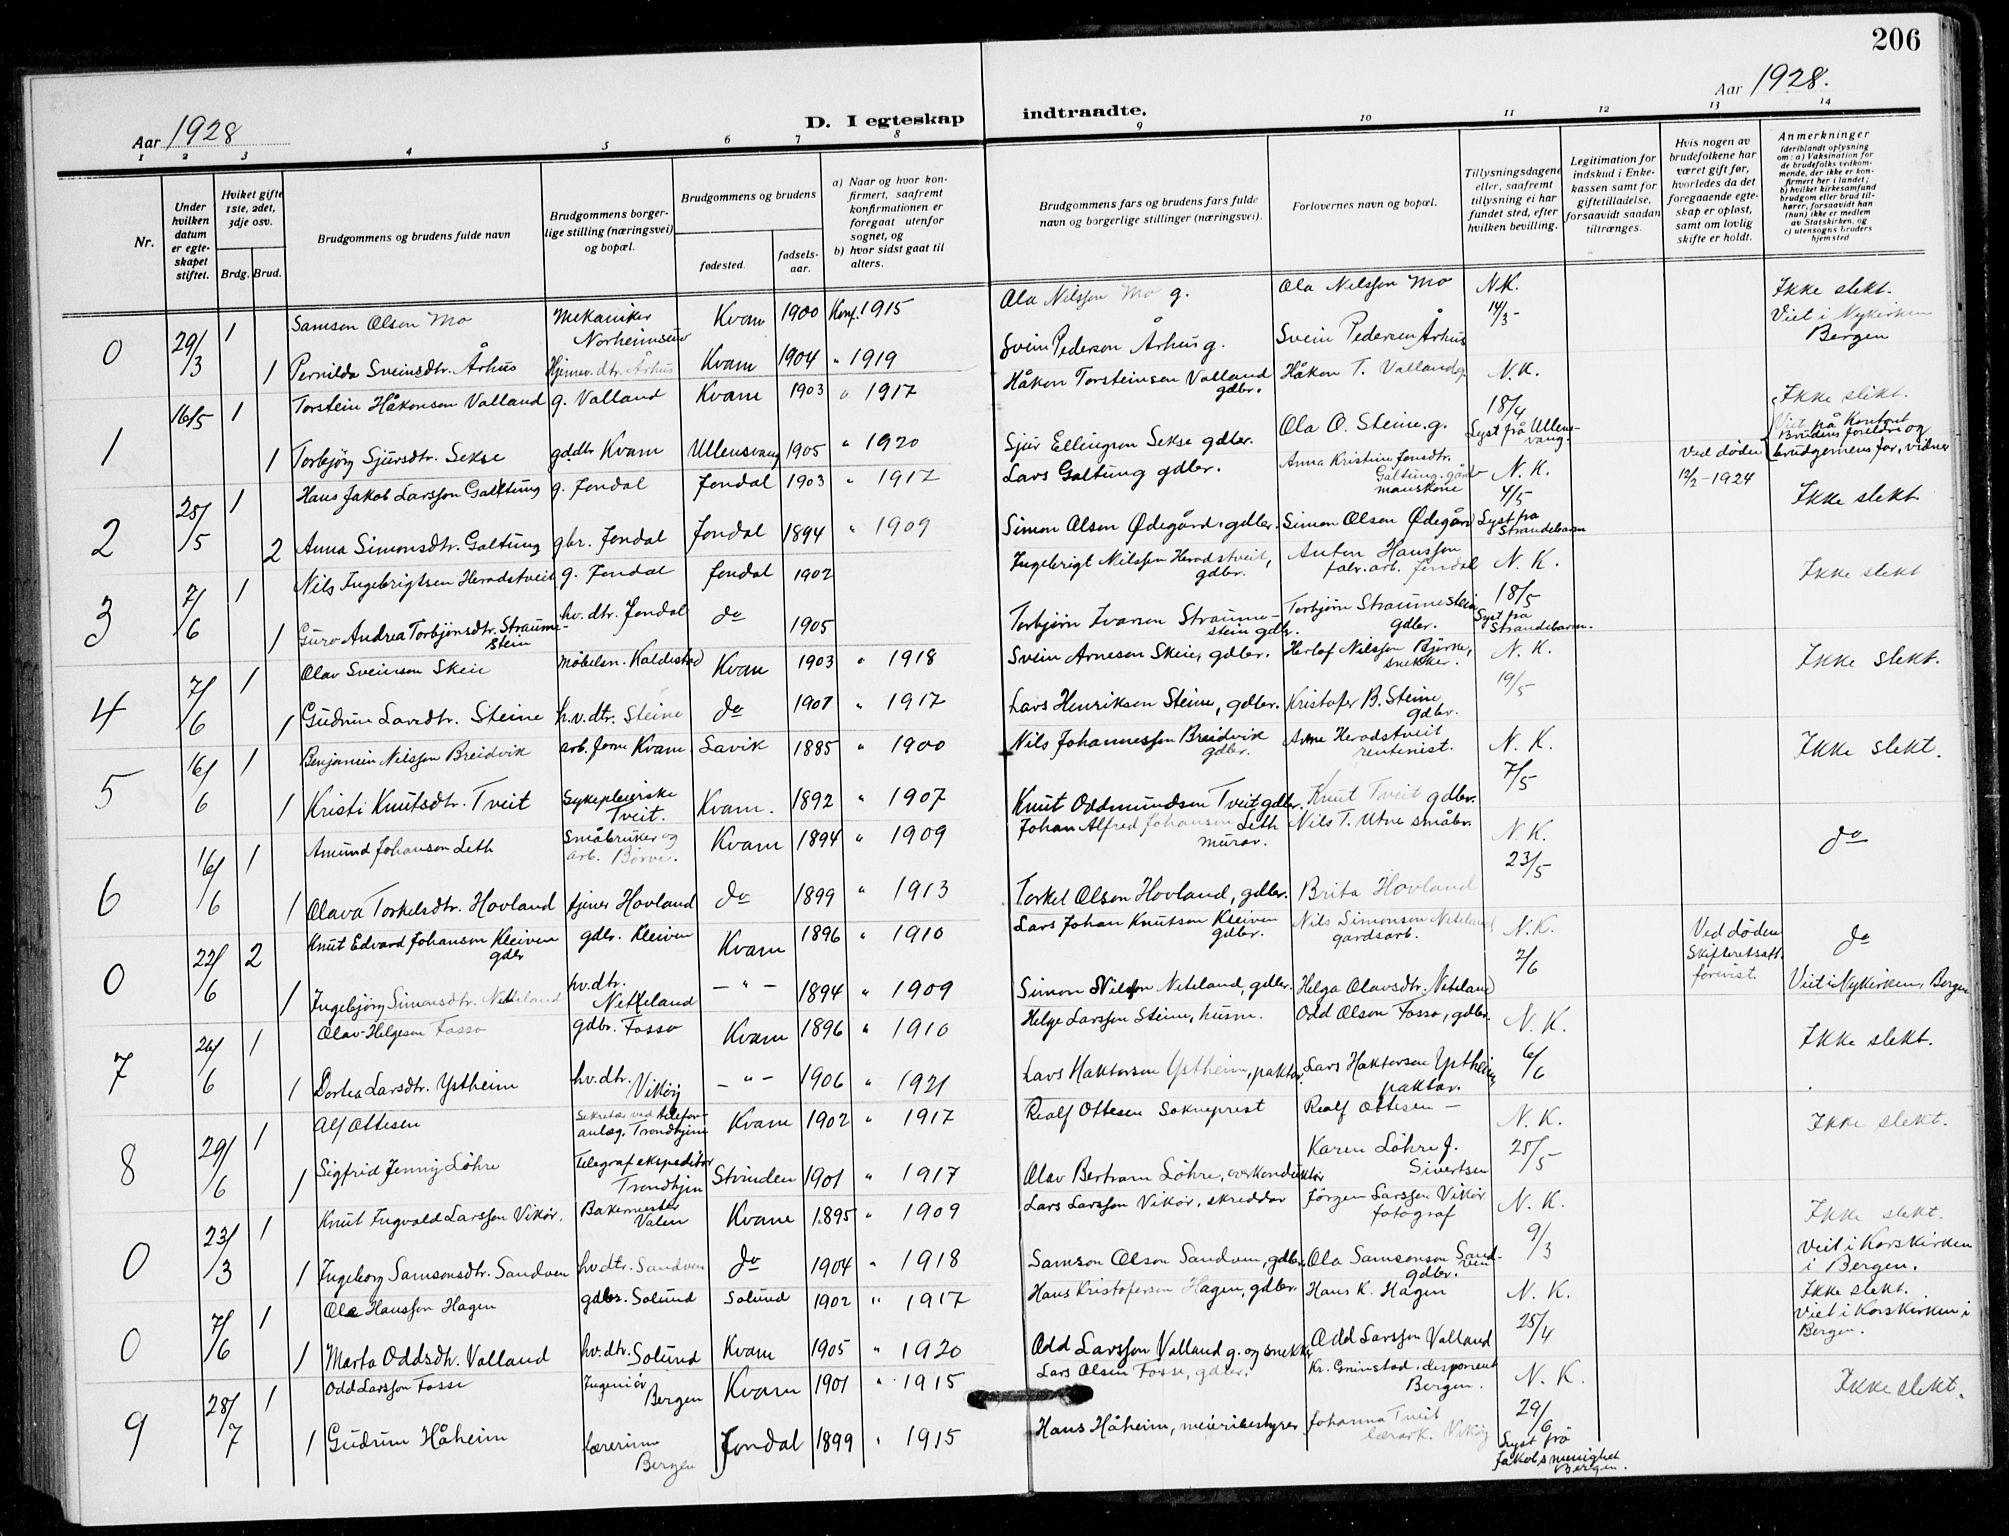 206
Aar 1928
D. I egteskap indtraadte.
Aar 1928.
1 2 3 4 5 6 7 8 9 10 11 12 13 14
Nr.
Under hvilken datum er egte- skapet stiftet.
Hviket gifte 1ste, 2det, 3dje osv.
Brdg. Brud.
Brudgommens og brudens fulde navn
Brudgommens borger- lige stilling (næringsvei) og bopæl.
Brudgommens og brudens
fødested.
fødsels- aar.
a) Naar og hvor kon- firmert, saafremt konfirmationen er foregaat utenfor sognet, og
b) hvor sidst gaat til alters.
Brudgommens fars og brudens fars fulde navn og borgerlige stillinger (næringsvei).
Forlovernes navn og bopæl.
Tillysningsdagene eller, saafremt tillysning ei har fundet sted, efter hvilken bevilling.
Legitimation for indskud i Enke- kassen samt for giftetilladelse, forsaavidt saadan tiltrænges.
Hvis nogen av brudefolkene har været gift før, hvorledes da det foregaaende egte- skap er opløst, samt om lovlig skifte er holdt.
Anmerkninger (deriblandt oplysning om: a) Vaksination for de brudefolks vedkom- mende, der ikke er kon- firmert her i landet; b) hvilket kirkesamfund brudgom eller brud til- hører, forsaavidt han (hun) ikke er medlem av Statskirken, og c) utensogns bruders hjemsted
0 29/3 1 Samson Olsen Mo Mekaniker Norheimsund Kvam 1900 Konf. 1915 Ola Nilssen Mo g. Ola Nilssen Mo N.K. 14/3- Ikke slekt. Viet i Nykirken Bergen
1 Pernilda Sveinsdtr. Århus Hjemev. dtr. Århus Kvam 1904 " 1919 Svein Pederson Århus g. Svein Pedersen Århus
1 16/5 1 Torstein Håkonson Valland g. Valland Kvam 1903 " 1917 Håkon Torsteinsen Valland gdbr. Håkon T. Valland g. N.K. 18/4 Ikke slekt. Viet på Kontoret Brudens foreldre og brudgomens far, vidner
1 Torbjørg Sjursdtr. Sekse gdbr Kvam Ullensvang 1905 " 1920 Sjur Ellingson Sekse gdbr. Ola O. Steine. g. Lyst frå Ullens- vang.
2 25/5 1 Hans Jakob Larsson Galtung g. Jondal Jondal 1903 " 1917 Lars Galtung gdbr. Anna Kristine Jonsdtr. Galtung. gård- manskone N. K. 4/5 Ved døden 12/2-1924 Ikke slekt.
2 Anna Simonsdtr. Galtung gbr. Jondal Jondal 1894 " 1909 Simon Olsen Ødegård, gdbr. Simon Olsen Ødegård Lyst fra Strandebarm
3 7/6 1 Nils Ingebrigtsen Heradstveit g. Jondal Jondal 1902 Ingebrigt Nilsson Heradstveit, gdbr. Anton Hansson fabr. arb. Jondal N. K. 18/5 Ikke slekt
1 Guro Andrea Torbjönsdtr. Straume- stein hv. dtr. Jondal do 1905 Torbjörn Ivarson Straume- stein gdbr. Torbjørn Straumestein gdbr. Lyst fra Strandebarm.
4 7/6 1 Olav Sveinson Skeie møbelsn. Kaldestad Kvam 1903 " 1918 Svein Arneson Skeie, gdbr. Herlof Nilsson Bjørke, snekker. N. K. 19/5 Ikke slekt.
1 Gudrun Larsdtr. Steine h.v.dtr. Steine do 1901 " 1917 Lars Henrikson Steine, gdbr. Kristofer B. Steine gdbr.
5 16/6 1 Benjamin Nilsson Breidvik arb. Jarne Kvam Lavik 1885 " 1900 Nils Johannessen Breidvik gdbr. Arne Heradstveit rentenist. N. K. 7/5 Ikke slekt.
1 Kristi Knutsdtr. Tveit Sykepleierske Tveit. Kvam. 1892 " 1907 Knut Oddmundson Tveit gdbr. Knut Tveit gdbr.
6 16/6 1 Amund Johanson Leth Småbruker og arb. Børve. Kvam 1894 " 1909 Johan Alfred Johanson Leth murar. Nils T. Utne småbr. N.K. 23/5 do
1 Olava Torkelsdtr. Hovland tjener Hovland do 1899 " 1913 Torkel Olson Hovland, gdbr. Brita Hovland
0 22/6 2 Knut Edvard Johanson Kleiven gdbr gdbr. Kleiven Kvam 1896 " 1910 Lars Johan Knutson Kleiven gdbr. Nils Simonson Neteland gardsarb. N.K. 2/6 Ved døden Skifteretsatt. forevist. do Viet i Nykirken, Bergen
1 Ingebjörg Simonsdtr. Netteland hv.dtr. Netteland - " - 1894 " 1909 Simon Nilsson Neteland, gdbr. Helga Olavsdtr. Neteland
7 26/6 1 Olav Helgeson Fosso gdbr. Fosso Kvam 1896 " 1910 Helge Larsson Steine, husm. Odd Olson Fosso, gdbr. N. K. 6/6 Ikke slekt.
1 Dortea Larsdtr. Ystheim hv.dtr. Vikøy - " - 1906 " 1921 Lars Haktorson Ystheim, paktar. Lars Haktorson Ystheim paktar.
8 29/6 1 Alf Ottesen Sekretær ved telefon- anlæg. Trondhjem Kvam 1902 " 1917 Realf Ottesen Sokneprest Realf Ottesen - N. K. 25/5 Ikke slekt.
1 Sigfrid Jenny Löhre Telegrafekspeditör Trondhjem Strinden 1901 " 1917 Olav Bertram Löhre, overkonduktör Karen Löhre f. Sivertsen
0 23/3 1 Knut Ingvald Larsson Vikør. Bakermester Valen Kvam 1895 " 1909 Lars Larsson Vikør, skreddar Jörgen Larsson Vikör fotograf N. K. 9/3 Ikke slekt. Viet i Korskirken i Bergen.
1 Ingeborg Samsonsdtr. Sandven hv.dtr. Sandven do 1904 " 1918 Samson Olson Sandven, gdbr. Ola Samsonson Sand- ven gdbr.
0 7/6 1 Ole Hansson Hagen gdbr. Solund Solund 1902 " 1917 Hans Kristoferson Hagen, gdbr. Hans K. Hagen N. K. 25/4 Ikke slekt. Viet i Korskirken i Bergen.
1 Marta Oddsdtr. Valland hv.dtr. Solund Kvam 1905 " 1920 Odd Larsson Valland g. og snekker Odd Larsson Valland
9 28/7 1 Odd Larsson Fosse Ingeniør Bergen Kvam 1901 " 1915 Lars Olson Fosse, gdbr. Kr. Grimstad, disponent Bergen. N. K. 29/6 Ikke slekt.
1 Gudrun Håheim lærerinne Bergen Jondal 1899 " 1915 Hans Håheim, meieribestyrer Johanna Tveit lærark. Vikøy Lyst frå Jakobs menighet Bergen.